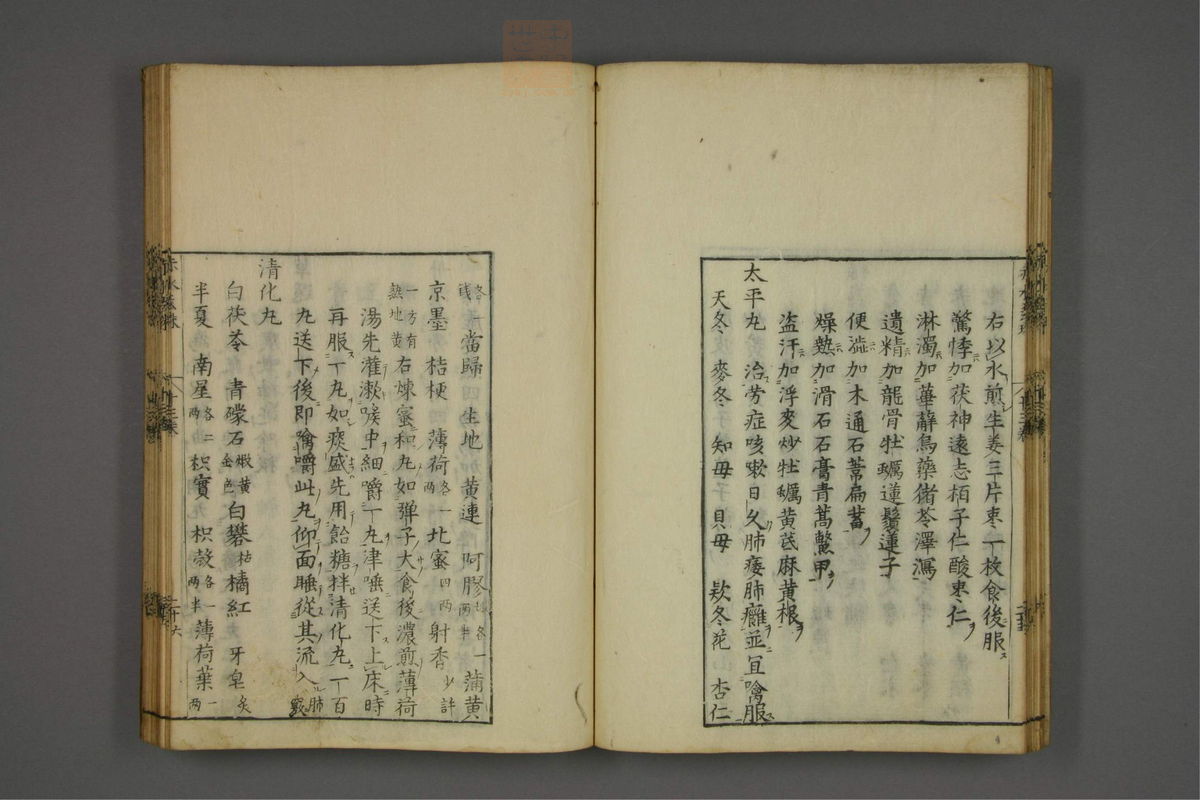 右以水煎生姜三片枣一枚食後服
驚悸加茯神遠志栢子仁酸枣仁
淋濁加萆薢烏藥猪苓澤瀉
遺精加龍骨牡蠣蓮鬚蓮子
便澁加木通石葦扁蓄
燥熱加滑石石膏青蒿鱉甲
盗汗加浮麥炒牡蠣黄芪麻黄根
太平丸 治劳症咳嗽日久肺痿肺癰並冝噙服
天冬 麥冬 知母 貝母 欵冬花 杏仁
各一錢當歸 生地 黄連 阿膠各一兩半蒲黄
京墨 桔梗 薄荷各一兩北蜜四两射香少許
一方有熟地黄右煉蜜和丸如弹子大食後濃煎薄荷
湯先灌漱喉中細嚼一丸津唾送下上床時
再服一丸如痰盛先用飴糖拌清化丸一百
丸送下後即噙嚼此丸仰面睡從其流入肺竅
清化丸
白茯苓 青礞石煅黄金色白礬枯橘紅 牙皂炙
半夏 南星各二两枳實 枳殼各一两半薄荷葉一两